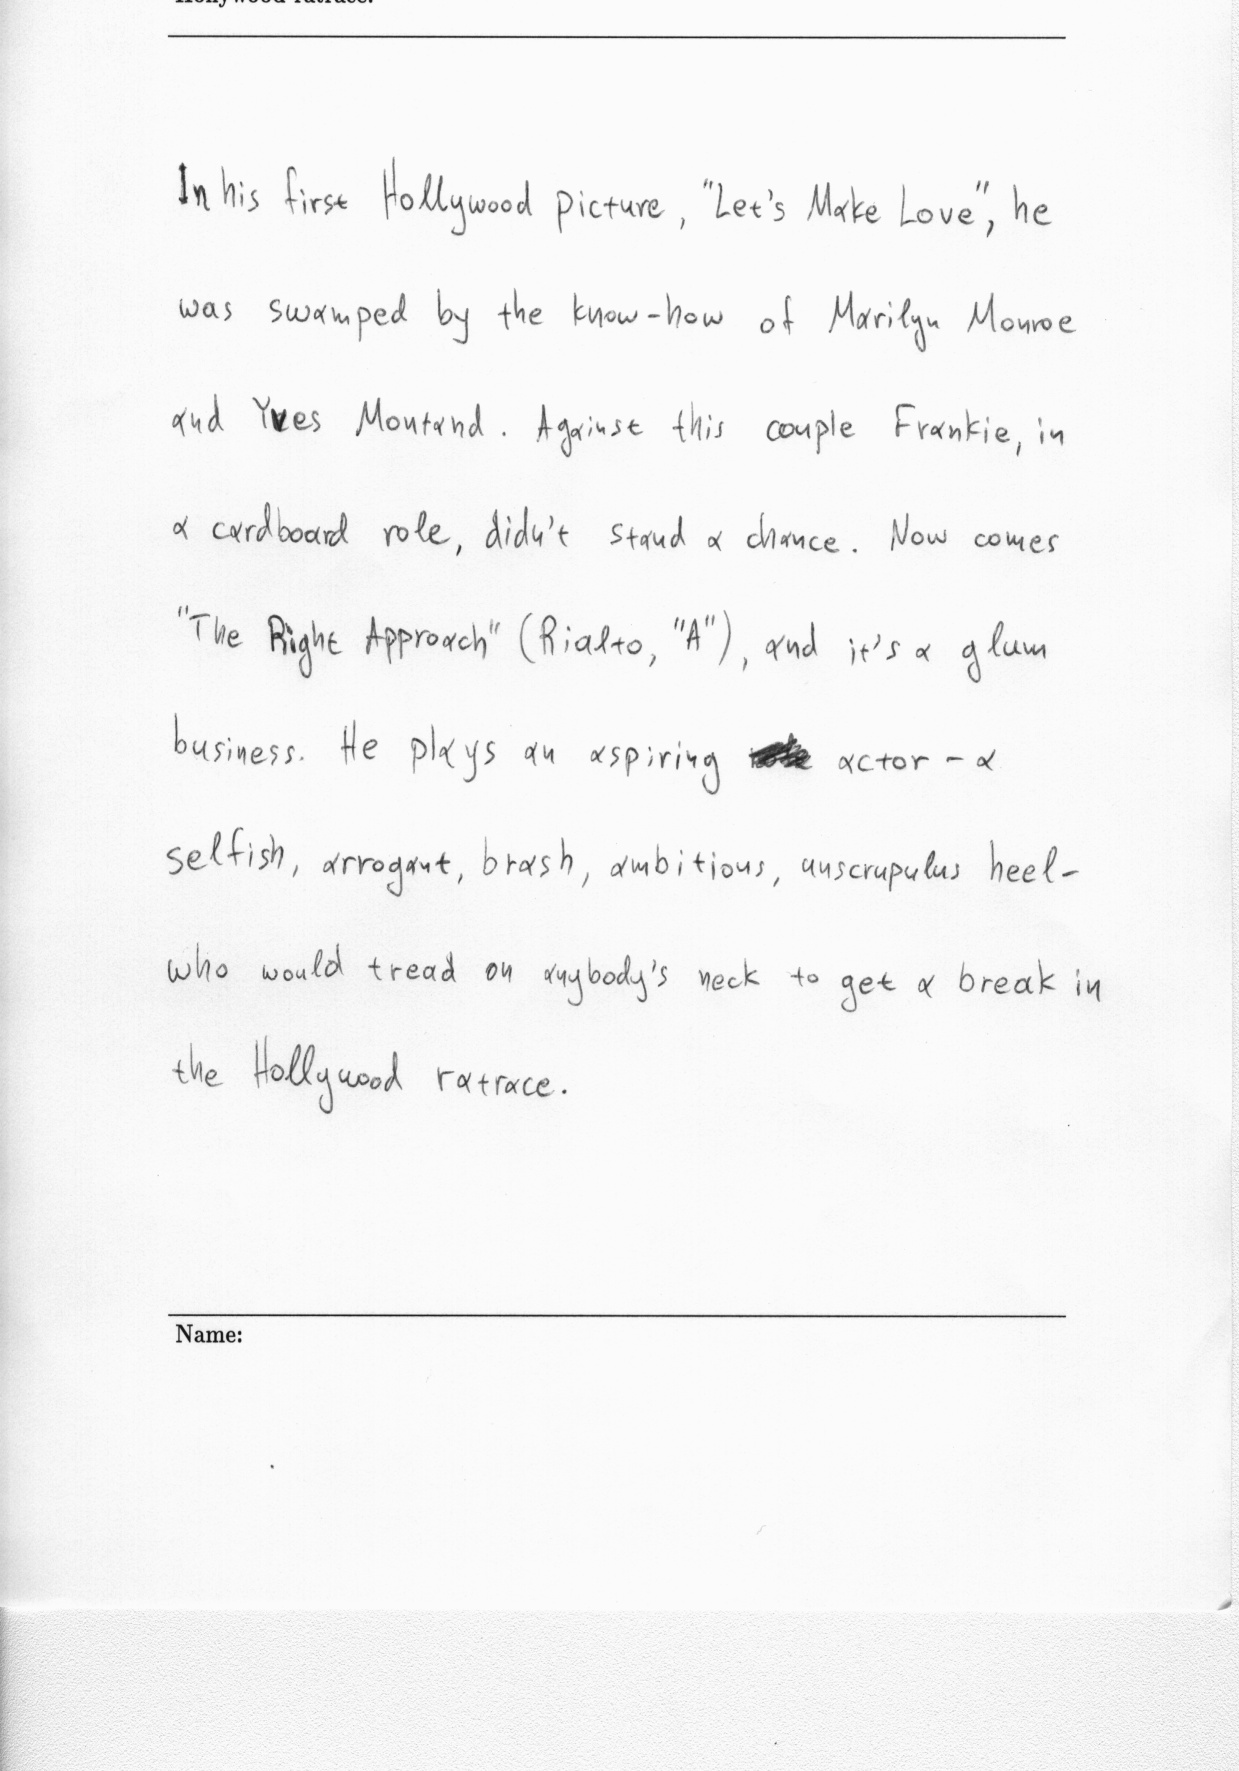 Hollywood ratrace.
In his first Hollywood picture, "Let's Make Love", he
was swamped by the know-how of Marilyn Monroe
and Yves Montand. Against this couple Frankie, in
a cardboard role, didn't stand a chance. Now comes
"The Right Approach" (Rialto, "A"), and it's a glum
business. He plays an aspiring actor - a
selfish, arrogant, brash, ambitious, unscrupulus heel-
who would tread on anybody's neck to get a break in
the Hollywood ratrace.
Name: